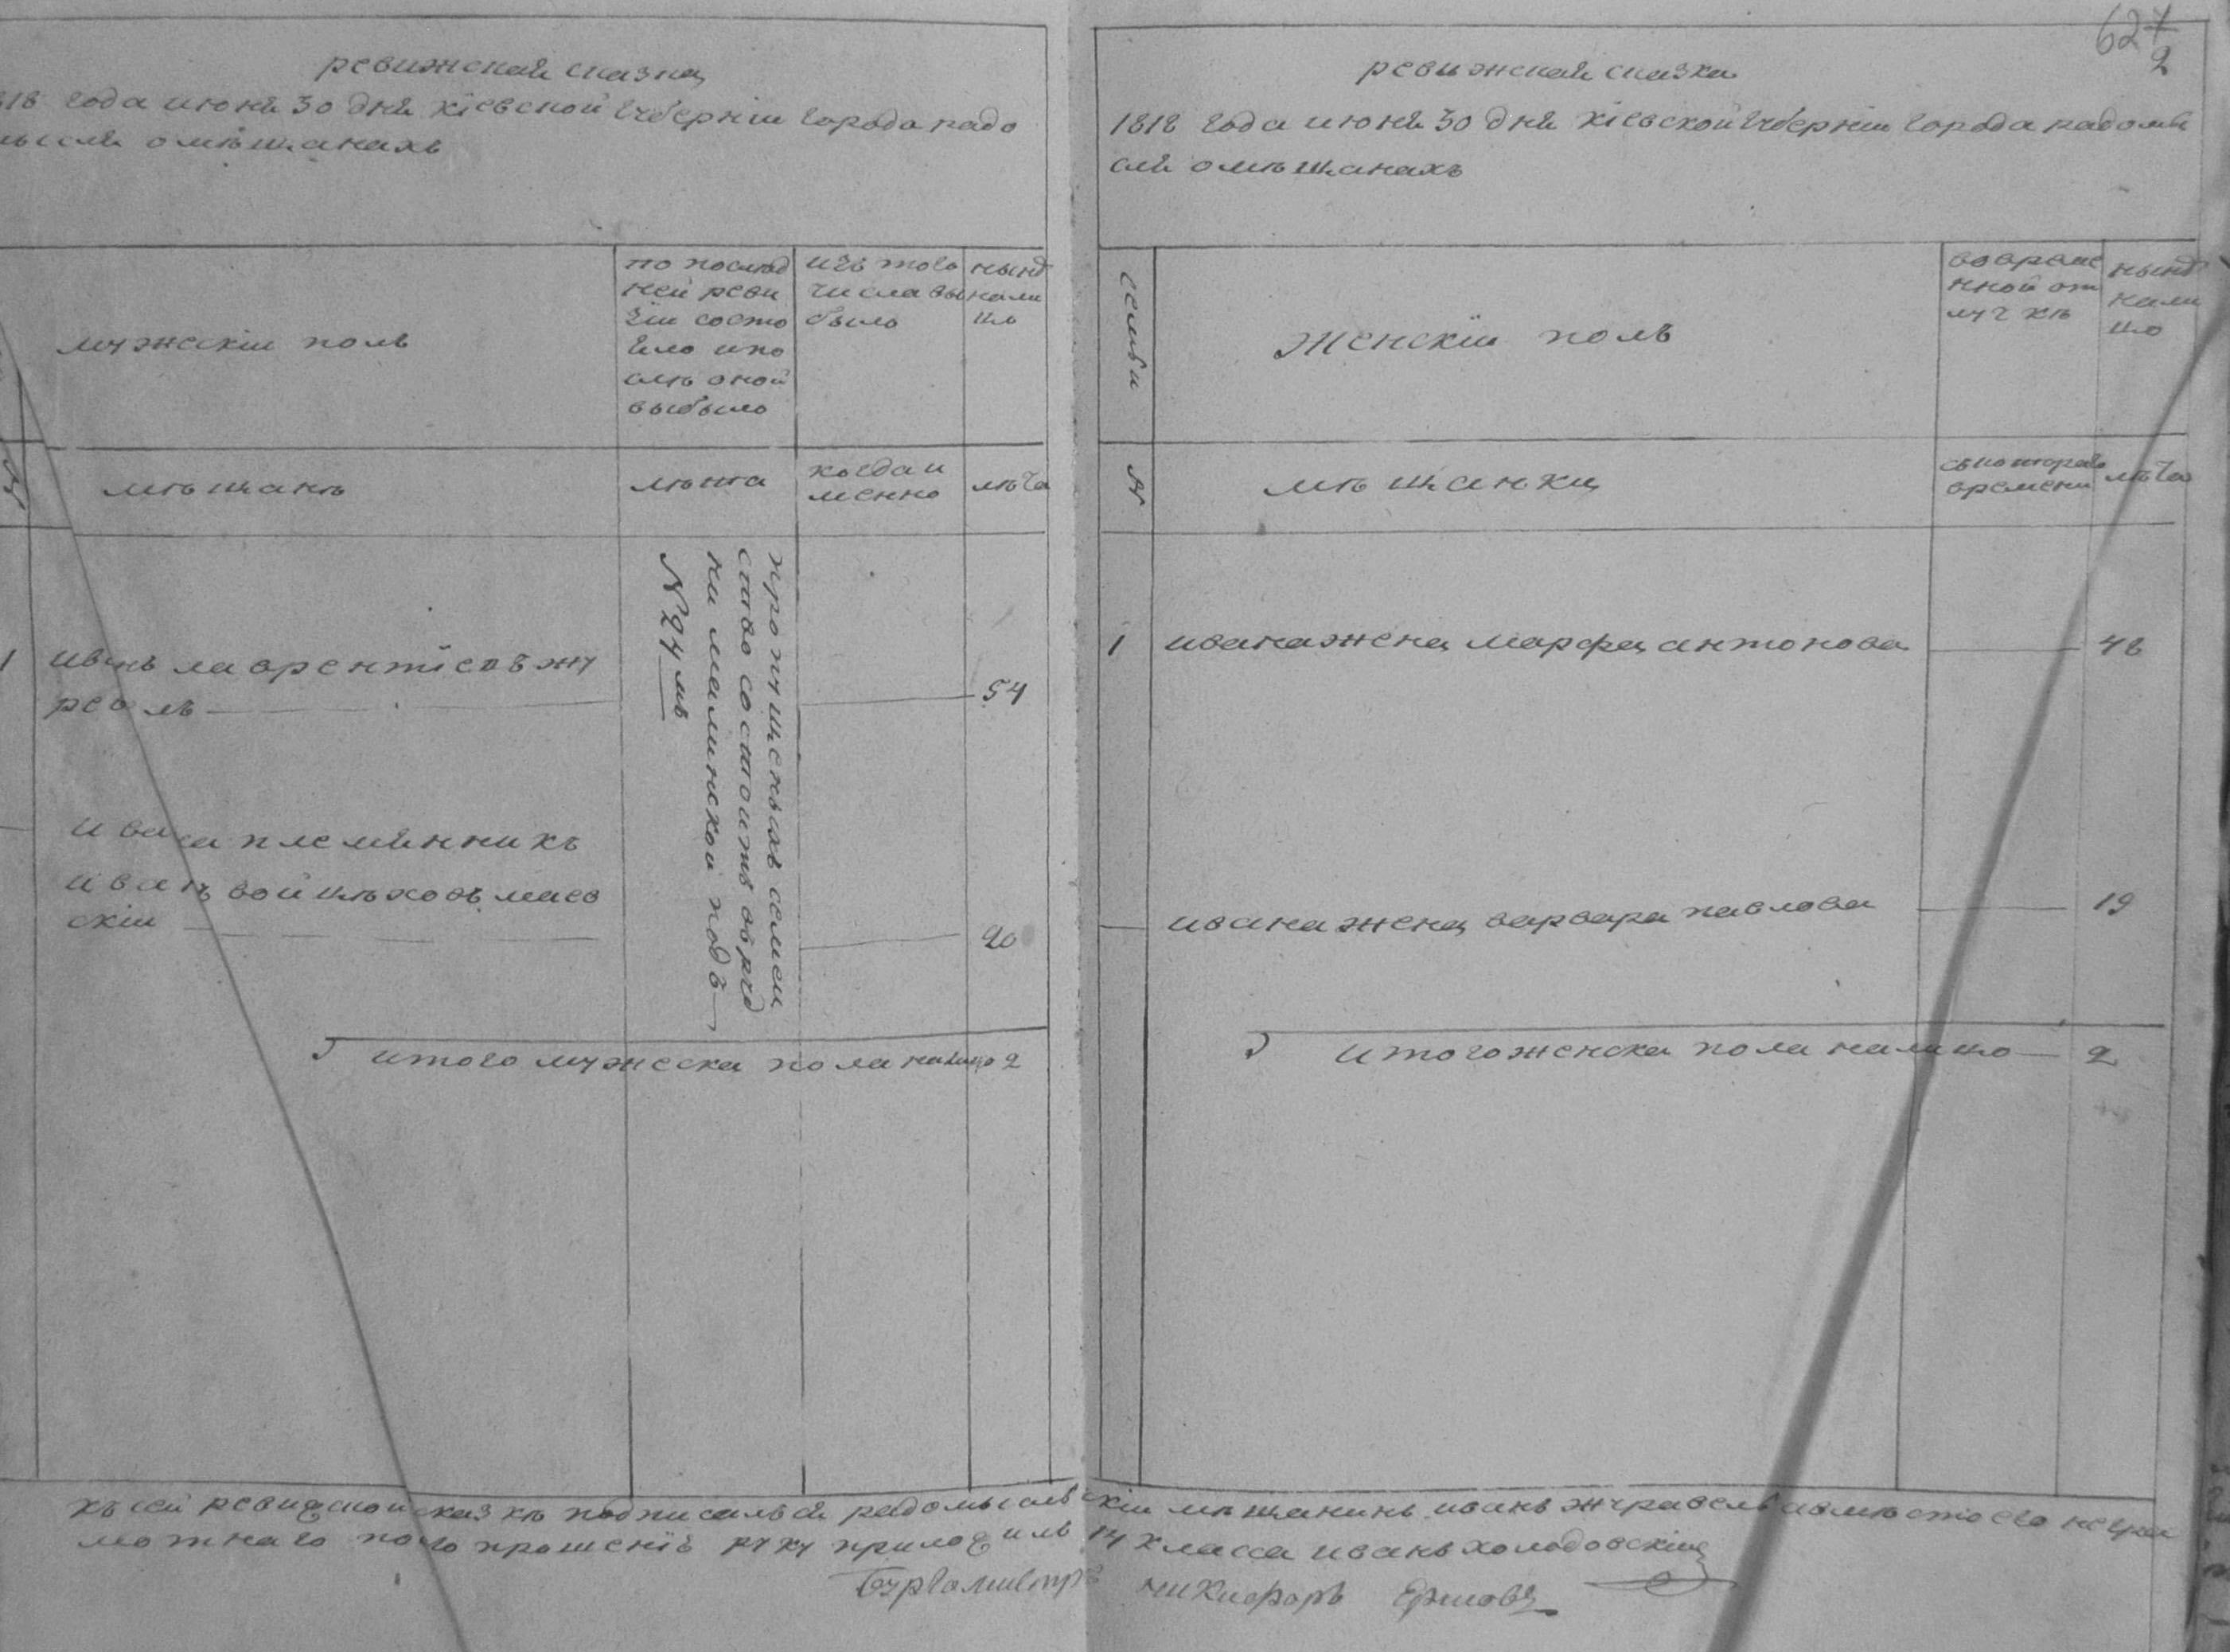 ревижская сказка
818 года июня 30 дня кіевской губерніи города радо
мысля о мѣщанахъ
мужескіи полъ
по послѣд
ней реви
зіи состо
яло и по
слѣ оной
выбыло
изъ того
числа вы
было
нынѣ
нали
цо
мѣщанѣ
лѣта
когда и
менно
лѣта
1 иванъ лаврентіевъ жу
равель 54
пропущенъ съ семеи
ство состоитъ въ
N 24 мъ
ивана племянникъ
иванъ войцѣховъ маев
скіи 20
итого мужеска пола налицо 2
627
2
ревижская сказка
1818 года июня 30 дня кіевской губерніи города радомы
сля о мѣщанахъ
семьи
женскіи полъ
во време
нной от
лучкѣ
нынѣ
нали
цо
N
мѣщанки
съ котораго
времени
лѣта
1 ивана жена марфа антонова 48
ивана жена варвара павлова 19
итого женска пола налицо 2
къ сей ревизской сказкѣ подписался радомысльскіи мѣщанинъ иванъ журавель а вмѣсто его неграмотнаго
по его прошенію руку приложилъ 14 класса иванъ холодовскіи
Бургомистръ никифоръ Ершовъ